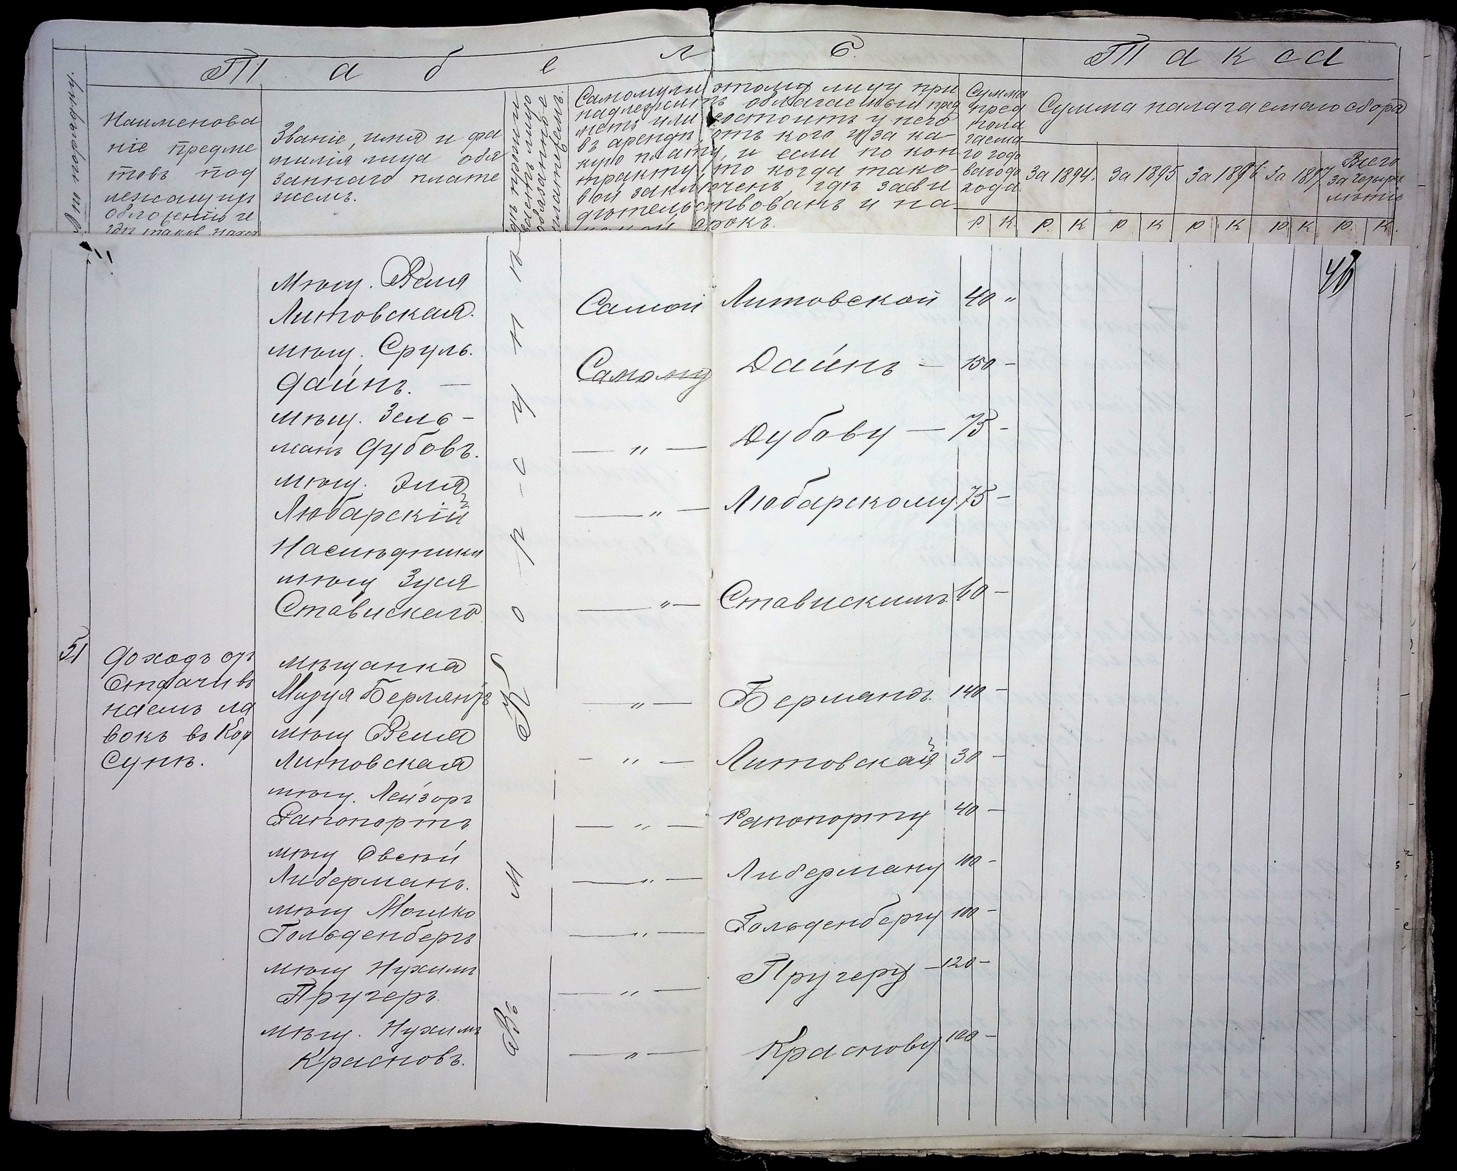 Табель
Такса
Наименова
ніе предме
товъ под
лежащихъ
обложенію и
гдѣ таков. наход
Званіе, имя и фа
милія лица обя
заннаго плате
жемъ.
гдѣ
обязанные
плательщ.
Самому ли этому лицу при
надлежитъ облагаемый пред
метъ или состоитъ у него
въ арендѣ отъ кого и за ка
кую плату, и если по кон
тракту, то когда тако-
вой заключенъ, гдѣ засви
дѣтельствованъ и на
какой срокъ.
Сумма
пред
пола
гаема
го годо
ваго до
хода.
Сумма налагаемаго сбора
За 1894.
За 1895
За 1896
За 1897
Всего
за четыре
лѣтіе
Р К Р К Р К Р К Р К Р К
46
Мѣщ. Веля
Литовская.
Самой Литовской 40 "
мѣщ. Сруль.
Дайнъ. —
Самому Дайнъ — 150 -
мѣщ. Зель-
манъ Дубовъ.
— " — Дубову — 75 -
мѣщ. Эля
Любарскій
— " — Любарскому 75 -
Наслѣдники
мѣщ Зуся
Ставискаго
— " — Ставискимъ 60 -
51
Доходъ отъ
отдачи въ
наемъ ла
вокъ въ Кор
сунѣ.
мѣщанка
Бермантъ
— " — Бермантъ 140 -
мѣщ Веля
Литовская
- " — Литовская 30 -
мѣщ. Лейзоръ
Рапопортъ
— " — Рапопорту 40 -
мѣщ Овсѣй
Либерманъ.
— " — Либерману 100 -
мѣщ Мошко
Гольденбергъ
— " — Гольденбергу 100 -
мѣщ Нухимъ
Пругеръ
— " — Пругеру — 120 -
мѣщ. Нухимъ
Красновъ.
— " — Краснову 100 -
Въ м Корсунѣ